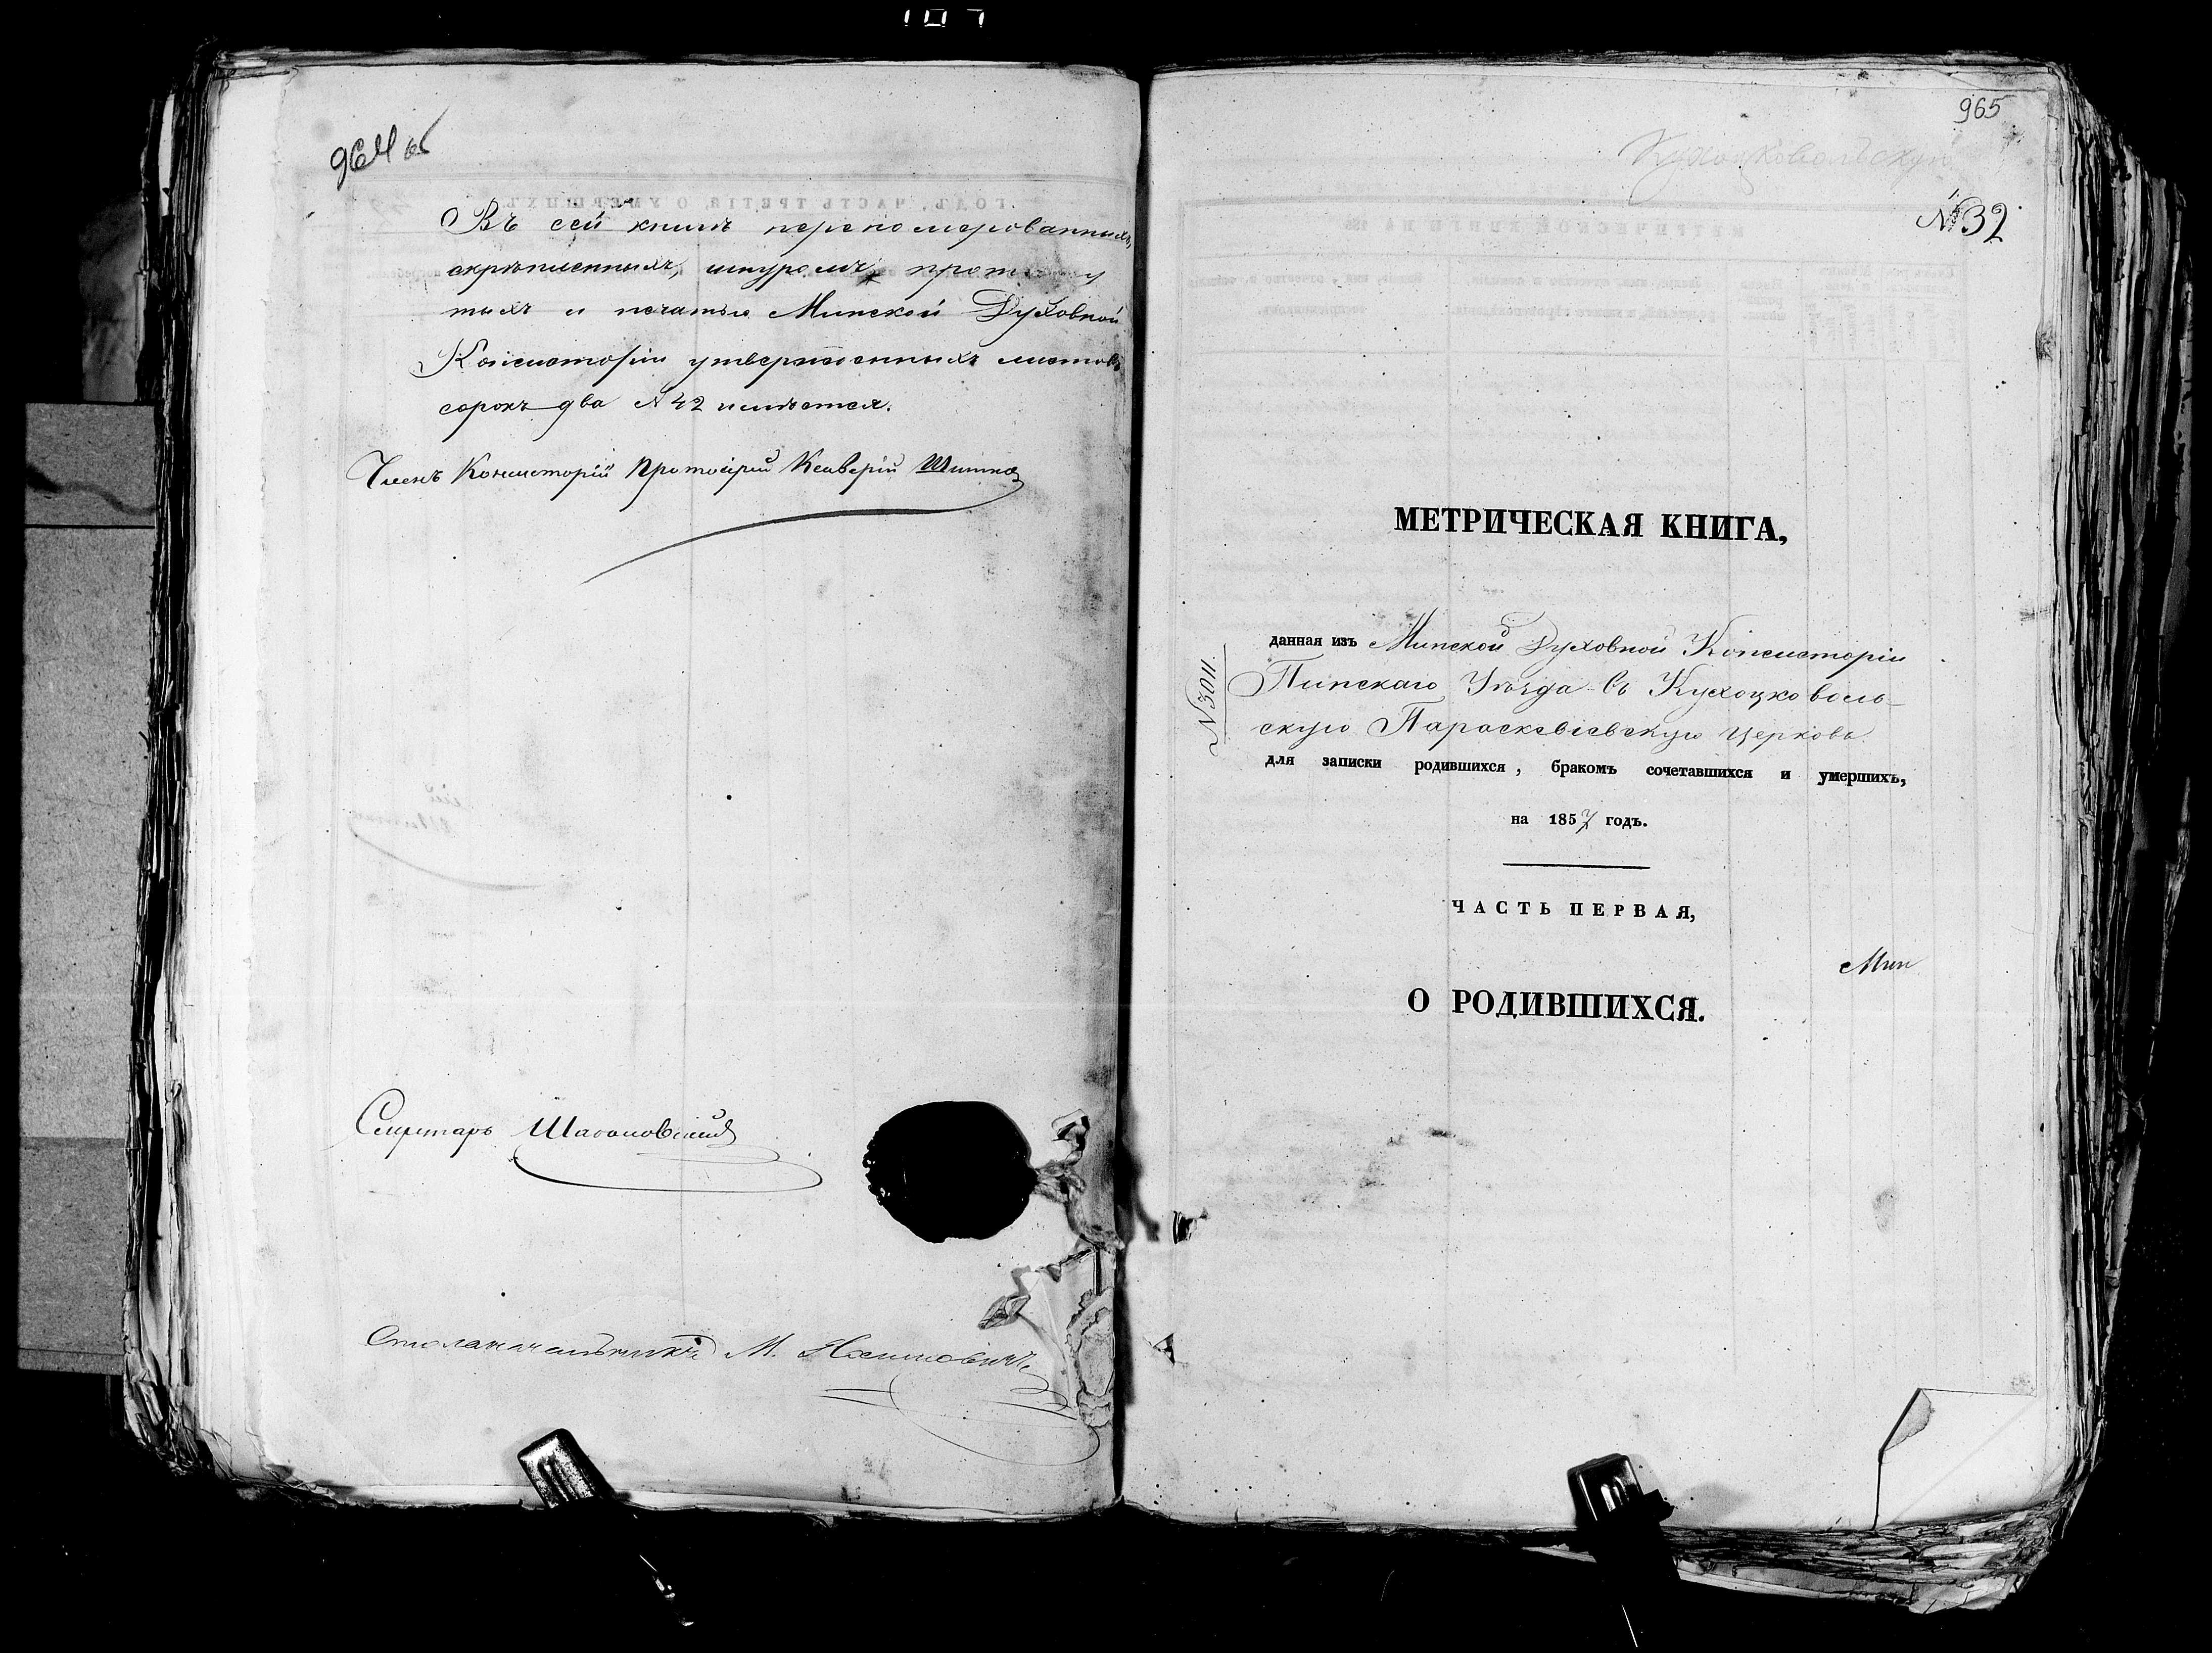 107
964 об
Въ сей книгѣ перепомерованныхъ,
скрѣпленныхъ, шнуромъ протянутыхъ
и печатью Минской Духовной
Консисторіи утвержденныхъ листовъ
сорокъ два № 42 имѣется.
Членъ Консисторіи Протоіерей Ксаверій
Секретарь
Столоначальникъ М.
965
Кухоцковольскую
№ 32
МЕТРИЧЕСКАЯ КНИГА,
№ 3011.
данная изъ Минской Духовной Консисторіи
Пинскаго Уѣзда въ Кухоцковоль-
скую Параскевіевскую церковь
для записки родившихся, бракомъ сочетавшихся и умершихъ,
на 1857 годъ.
ЧАСТЬ ПЕРВАЯ,
Мин
О РОДИВШИХСЯ.